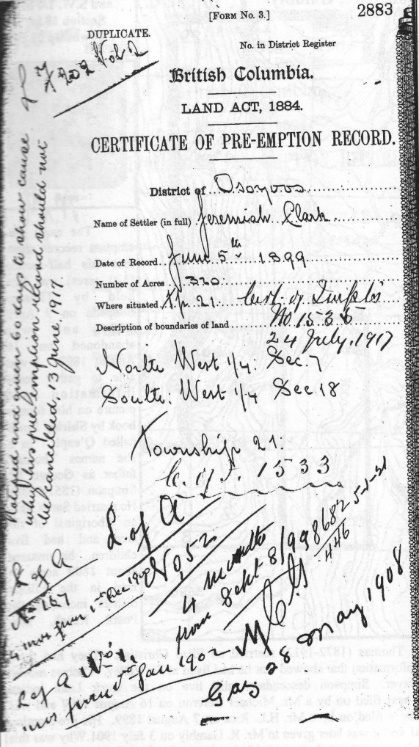 2883
[FORM No. 3.]
DUPLICATE.
No. in District Register
F 202 Vol 2
British Columbia.
LAND ACT, 1884.
CERTIFICATE OF PRE-EMPTION RECORD.
District of Osoyoos
Name of Settler (in full) Jeremiah Clark
Date of Record June 5th 1899
Number of Acres 320
Where situated Tp. 21. Cert. of Impts
No. 1535
Description of boundaries of land
24 July, 1917
North West 1/4 Sec. 7
South: West 1/4 Sec 18
Township 21.
C. of I. 1533
Notified and given 60 days to show cause
why this pre-emption record should not
be cancelled 13 June 1917.
L. of A
No 952
4 months
from Sept 8/99
8682 5-1-21
446
L of A
No 167
L of A No 1.
from Jan 1902
Gaz 28 May 1908